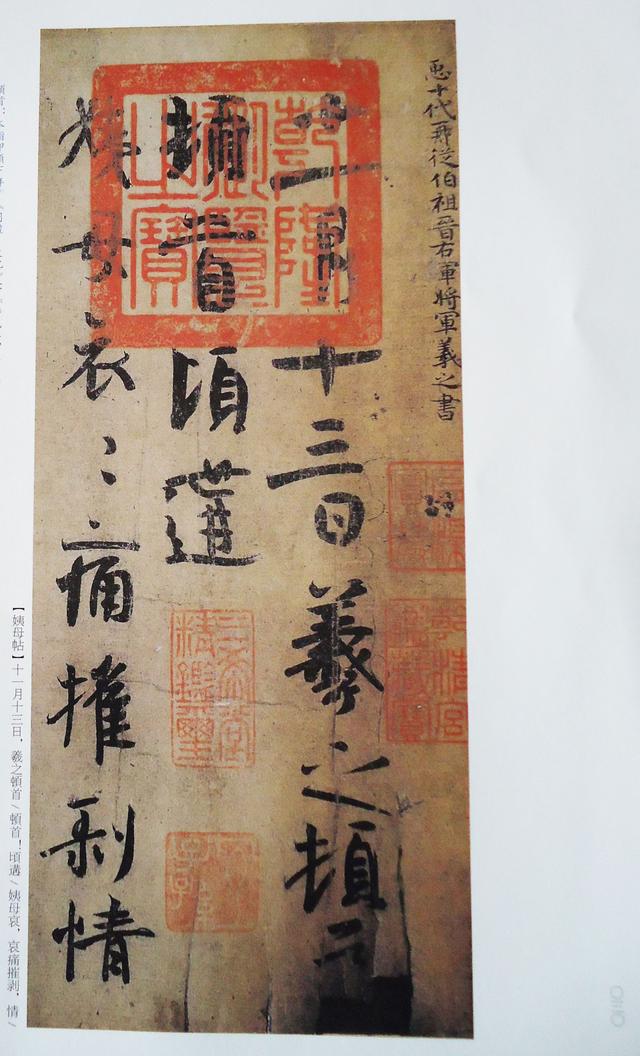 臣十代再從伯祖晉右軍將軍羲之書
十一月十三日羲之頓首
頓首頃遘
姨母哀哀痛摧剥情
乾隆御覽之寶
三希堂精鑑璽
【姨母帖】十一月十三日，羲之頓首／頓首！頃遘／姨母哀，哀痛摧剥，情／